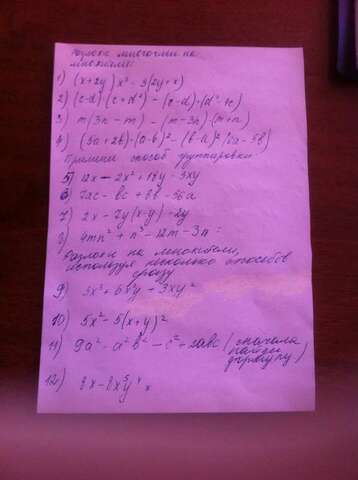 Разложи многочлен на
множители:
1) (x+2y)x² - 3(2y+x)
2) (c-d)·(c+d²) - (c-d)·(d²-4c)
3) m(3n-m) - (m-3n)(m+n)
4) (5a+2b)·(a-b)² - (b-a)²(2a-5b)
Примени способ группировки
5) 12x - 2x² + 18y - 3xy
6) 7ac - bc + 8b - 56a
7) 2x - 7y(x-y) - 2y
8) 4mn² + n³ - 12m - 3n =
Разложи на множители,
используя несколько способов
сразу
9) 3x³ + 6x²y + 3xy²
10) 5x² - 5(x+y)²
11) 9a² - a²b² - c² + 2abc (сначала
найди
формулу)
12) 8x - 2x⁵y⁴